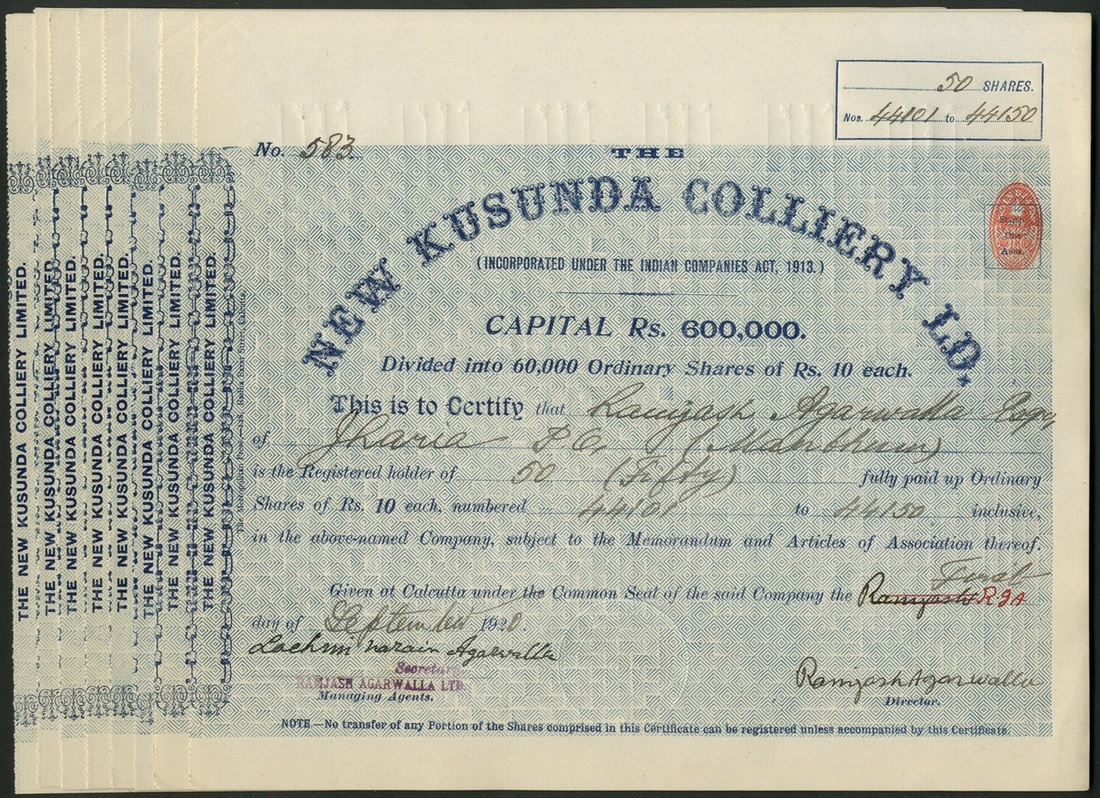 50 SHARES.
Nos. 44101 to 44150
No. 583.
THE
NEW KUSUNDA COLLIERY LD.
(INCORPORATED UNDER THE INDIAN COMPANIES ACT, 1913.)
CAPITAL Rs. 600,000.
Divided into 60,000 Ordinary Shares of Rs. 10 each.
This is to Certify that Ramjash Agarwalla Esqr,
of Jharia P.O. (Manbhum)
is the Registered holder of 50 (Fifty) fully paid up Ordinary
Shares of Rs. 10 each, numbered 44101 to 44150 inclusive,
in the above-named Company, subject to the Memorandum and Articles of Association thereof.
First
Given at Calcutta under the Common Seal of the said Company the Ramjash RJA
day of September 1920.
Lachmi narain Agarwalla
Secretary
RAMJASH AGARWALLA LTD.
Managing Agents.
Ramjash Agarwalla
Director.
NOTE—No transfer of any Portion of the Shares comprised in this Certificate can be registered unless accompanied by this Certificate.
THE NEW KUSUNDA COLLIERY LIMITED.
THE NEW KUSUNDA COLLIERY LIMITED.
THE NEW KUSUNDA COLLIERY LIMITED.
THE NEW KUSUNDA COLLIERY LIMITED.
THE NEW KUSUNDA COLLIERY LIMITED.
THE NEW KUSUNDA COLLIERY LIMITED.
THE NEW KUSUNDA COLLIERY LIMITED.
THE NEW KUSUNDA COLLIERY LIMITED.